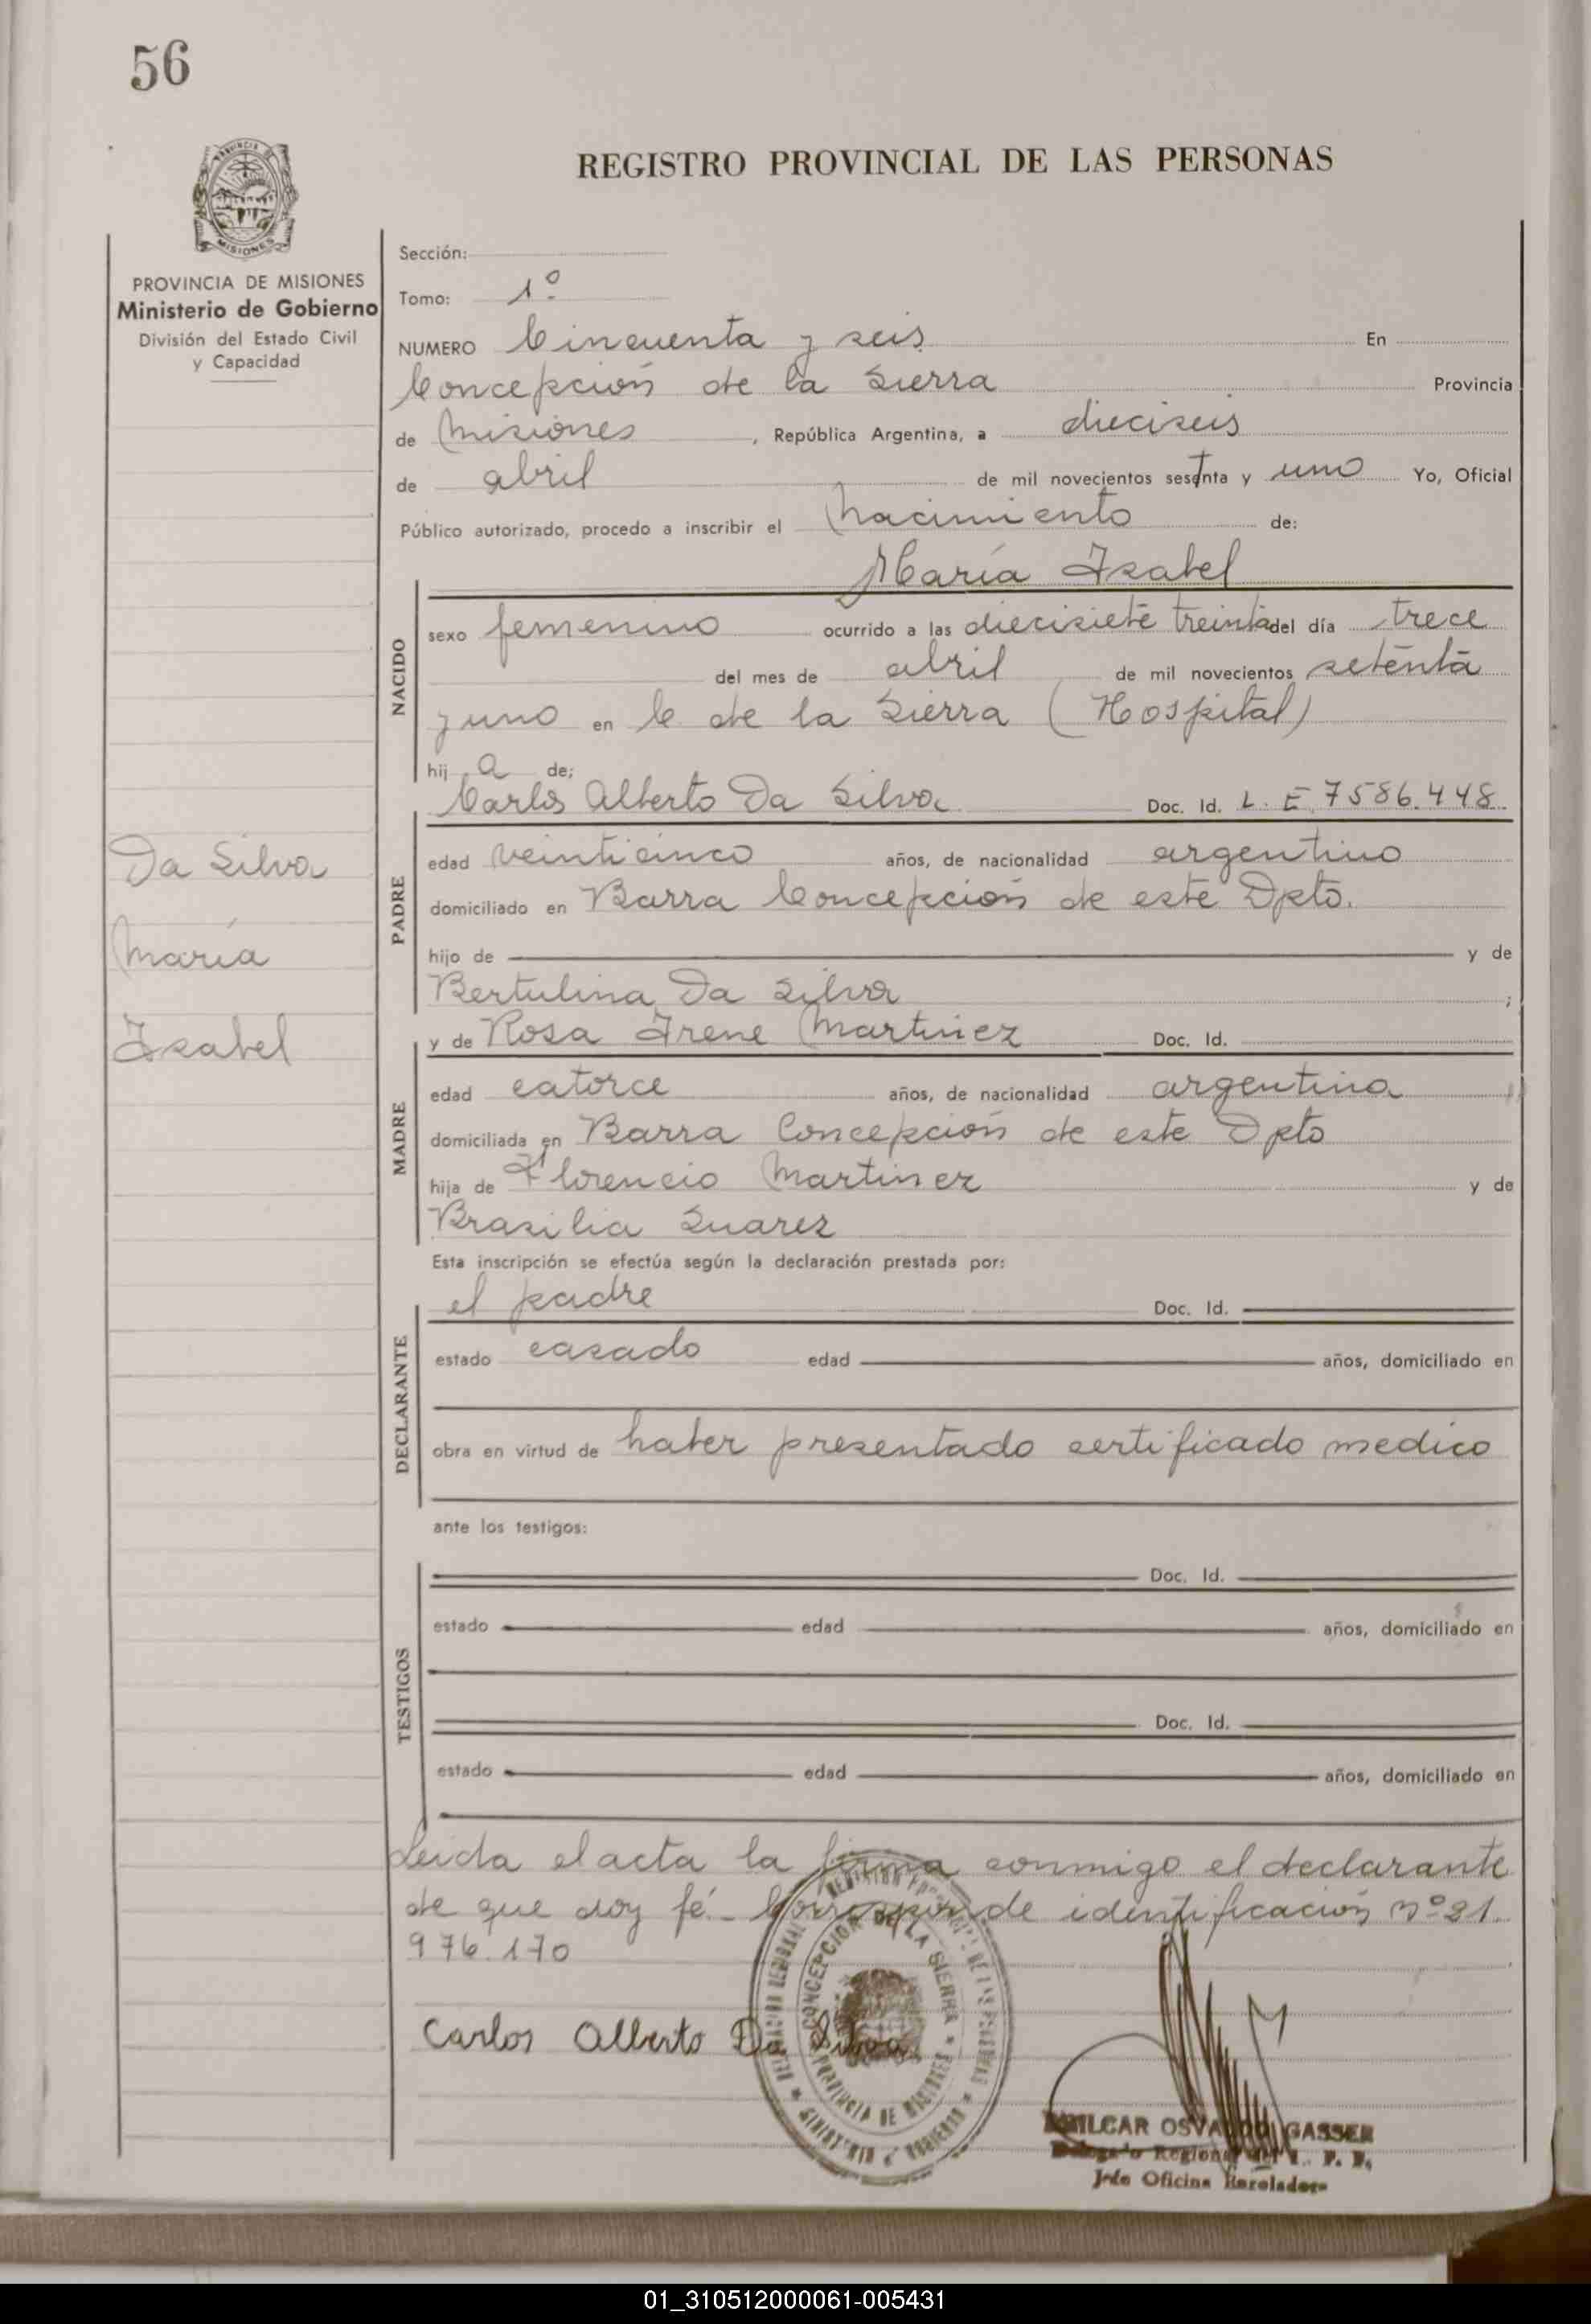 56
REGISTRO PROVINCIAL DE LAS PERSONAS
PROVINCIA DE MISIONES
Ministerio de Gobierno
División del Estado Civil
y Capacidad
Sección:
Tomo: 1º
NUMERO Cincuenta y seis En
Concepción de la Sierra Provincia
de Misiones, República Argentina, a dieciseis
de abril de mil novecientos setenta y uno Yo, Oficial
Público autorizado, procedo a inscribir el nacimiento de:
María Isabel
NACIDO
sexo femenino ocurrido a las diecisiete treinta del día trece
del mes de abril de mil novecientos setenta
y uno en C de la Sierra (Hospital)
hij a de;
Carlos Alberto Da Silva Doc. Id. L. E 7586.448
PADRE
edad veinticinco años, de nacionalidad argentino
domiciliado en Barra Concepción de este Dpto.
hijo de y de
Bertulina Da Silva ;
y de Rosa Irene Martinez Doc. Id.
MADRE
edad catorce años, de nacionalidad argentina
domiciliada en Barra Concepción de este Dpto
hija de Florencio Martinez y de
Brasilia Suarez
Esta inscripción se efectúa según la declaración prestada por:
el padre Doc. Id.
DECLARANTE
estado casado edad años, domiciliado en
obra en virtud de haber presentado certificado medico
ante los testigos:
Doc. Id.
TESTIGOS
estado edad años, domiciliado en
Doc. Id.
estado edad años, domiciliado en
Leida el acta la firma conmigo el declarante
de que doy fé.- Corresponde identificación nº 21.
976.170
Carlos Alberto Da Silva
Da Silva
María
Isabel
CONCEPCION DE LA SIERRA
PROVINCIA DE MISIONES
OSVALDO GASSER
Oficina
01_310512000061-005431